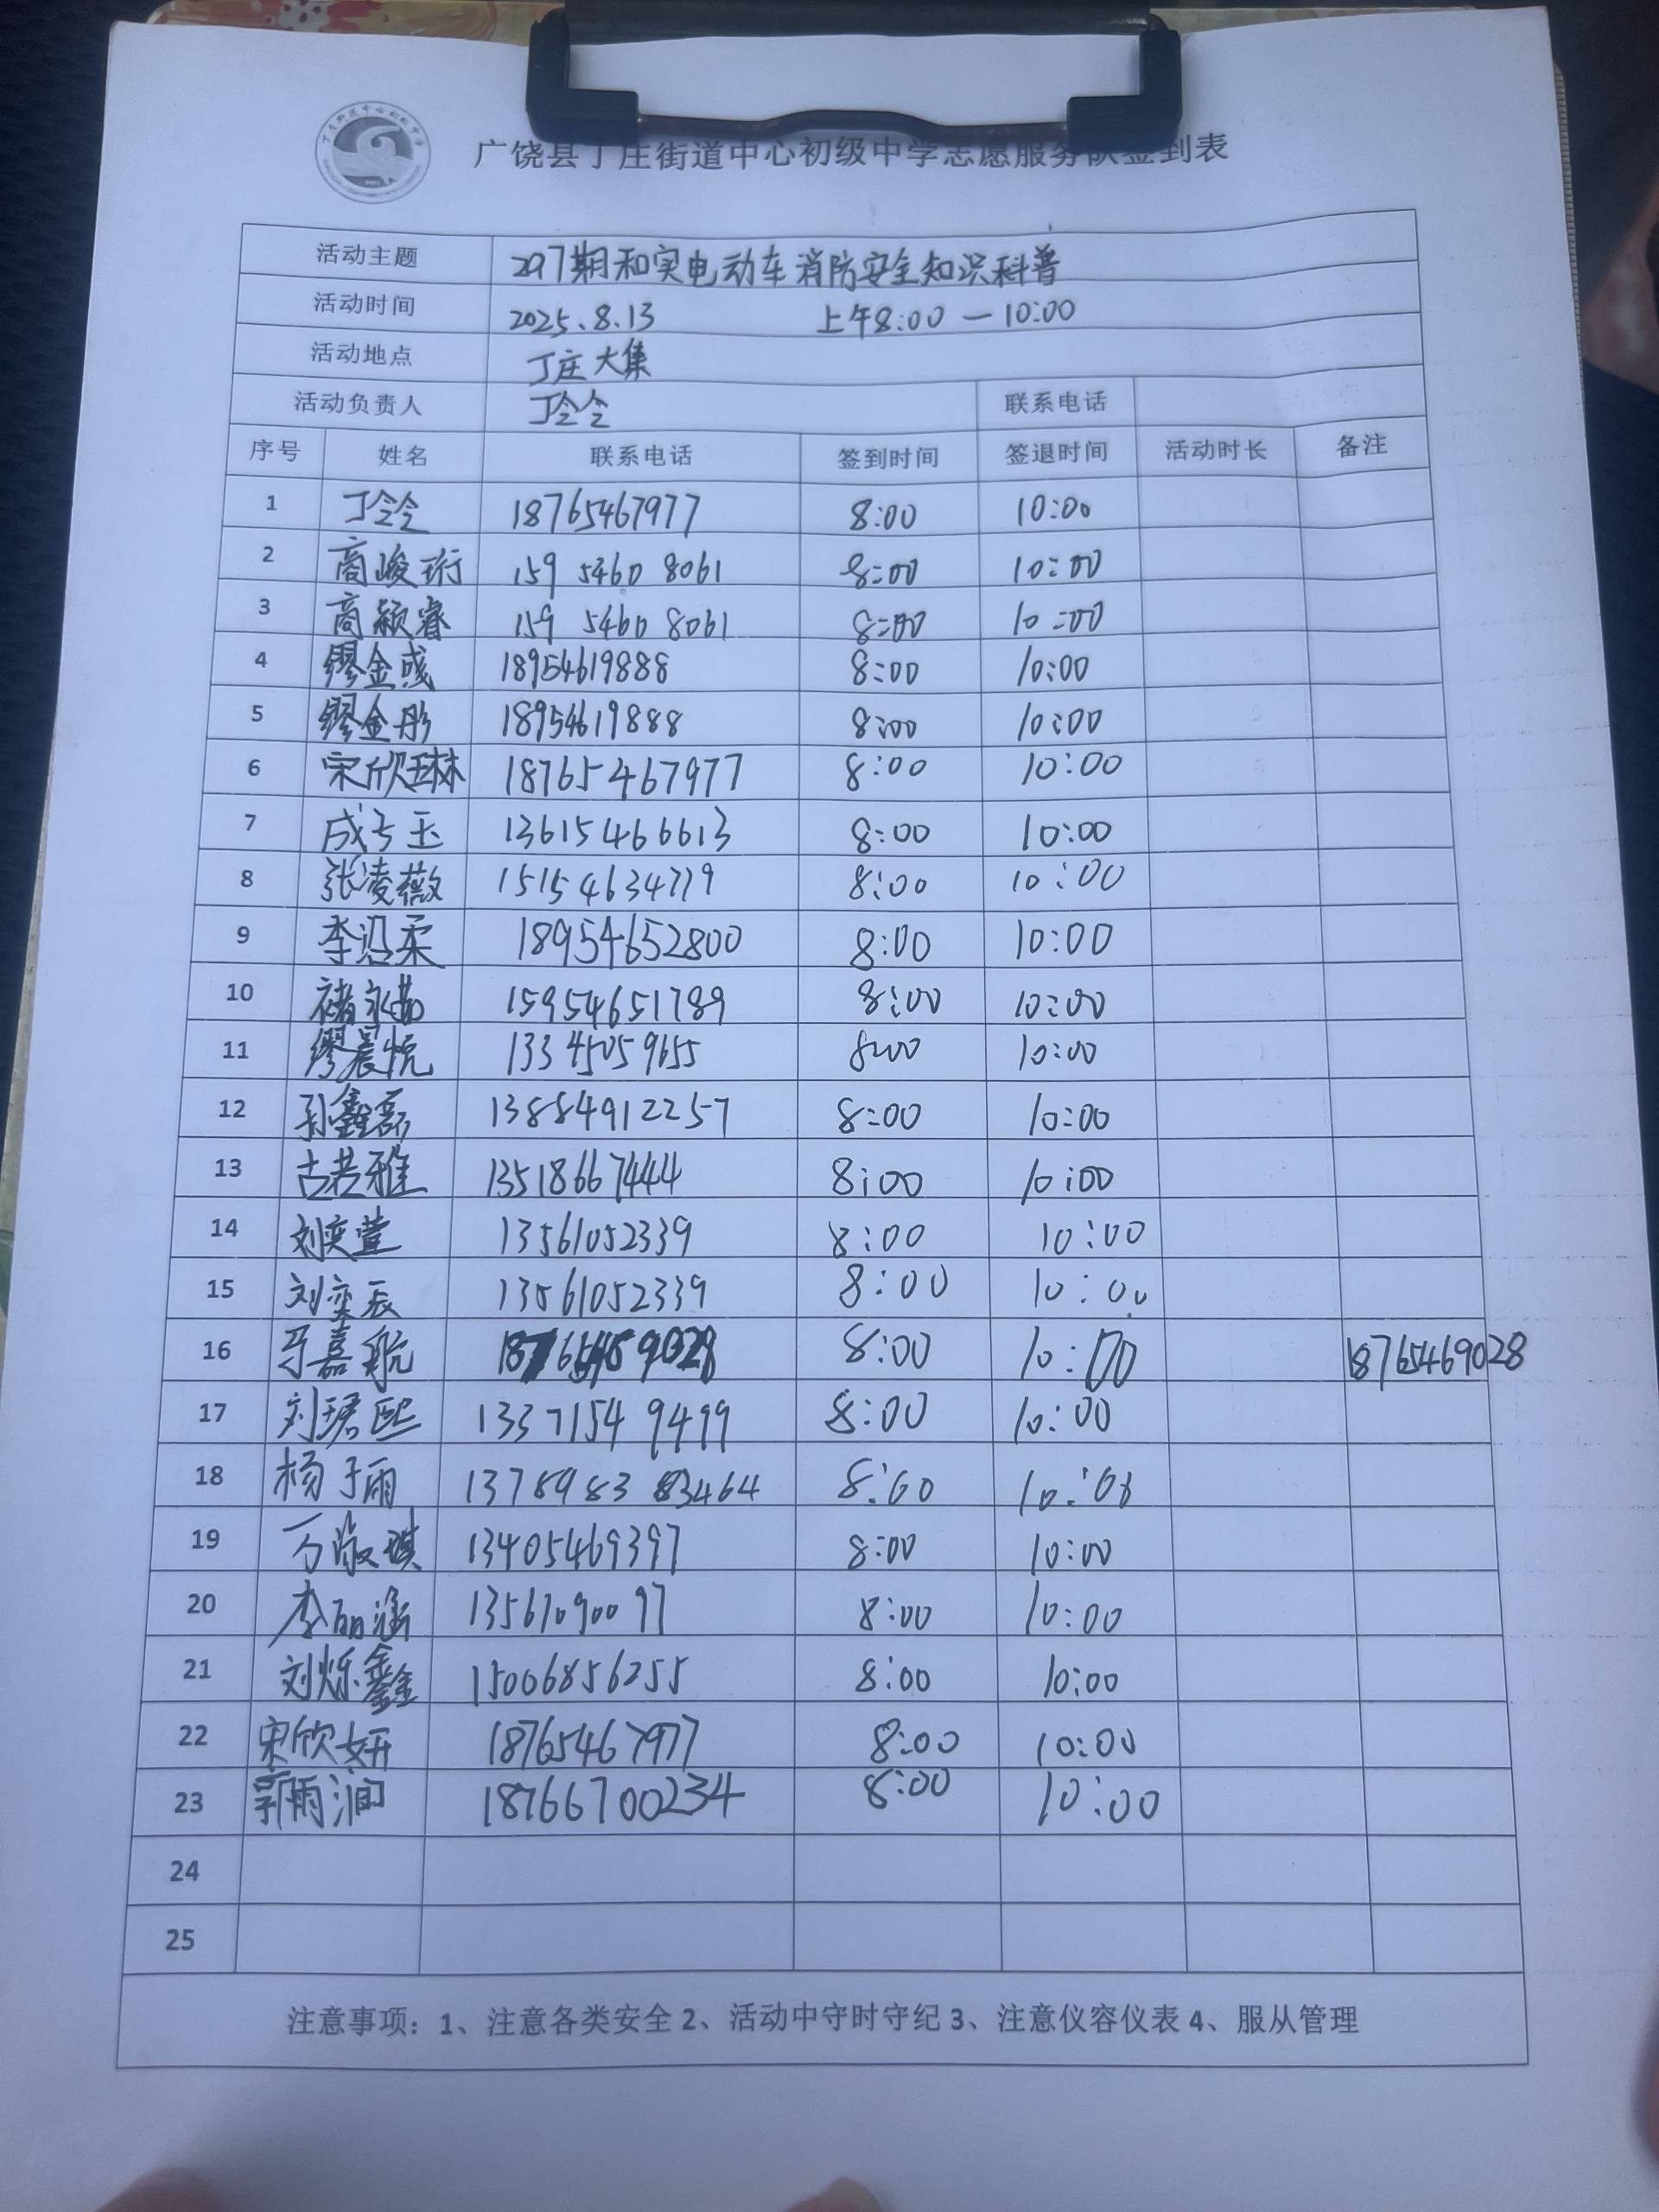 广饶县丁庄街道中心初级中学志愿服务队签到表
活动主题 297期和实电动车消防安全知识科普
活动时间 2025.8.13 上午8:00—10:00
活动地点 丁庄大集
活动负责人 丁令令 联系电话
序号 姓名 联系电话 签到时间 签退时间 活动时长 备注
1 丁令令 18765467977 8:00 10:00
2 商峻珩 159 5460 8061 8:00 10:00
3 商颖睿 159 5460 8061 8:00 10:00
4 缪金彧 18954619888 8:00 10:00
5 缪金彤 18954619888 8:00 10:00
6 宋欣琳 18765467977 8:00 10:00
7 成子玉 13615466613 8:00 10:00
8 张凌薇 15154634779 8:00 10:00
9 李沿柔 18954652800 8:00 10:00
10 褚永茹 15954651789 8:00 10:00
11 缪晨悦 13345059655 8:00 10:00
12 孙鑫磊 13884912257 8:00 10:00
13 古若雅 13518667444 8:00 10:00
14 刘奕萱 13561052339 8:00 10:00
15 刘奕辰 13561052339 8:00 10:00
16 嘉航 8:00 10:00 18765469028
17 刘珺熙 13371549499 8:00 10:00
18 杨子雨 1378983 83464 8:00 10:00
19 万淑琪 13405469397 8:00 10:00
20 李丽涵 13561090097 8:00 10:00
21 刘烁鑫 15006856255 8:00 10:00
22 宋欣妍 18765467977 8:00 10:00
23 郭雨润 18766700234 8:00 10:00
24
25
注意事项：1、注意各类安全 2、活动中守时守纪 3、注意仪容仪表 4、服从管理